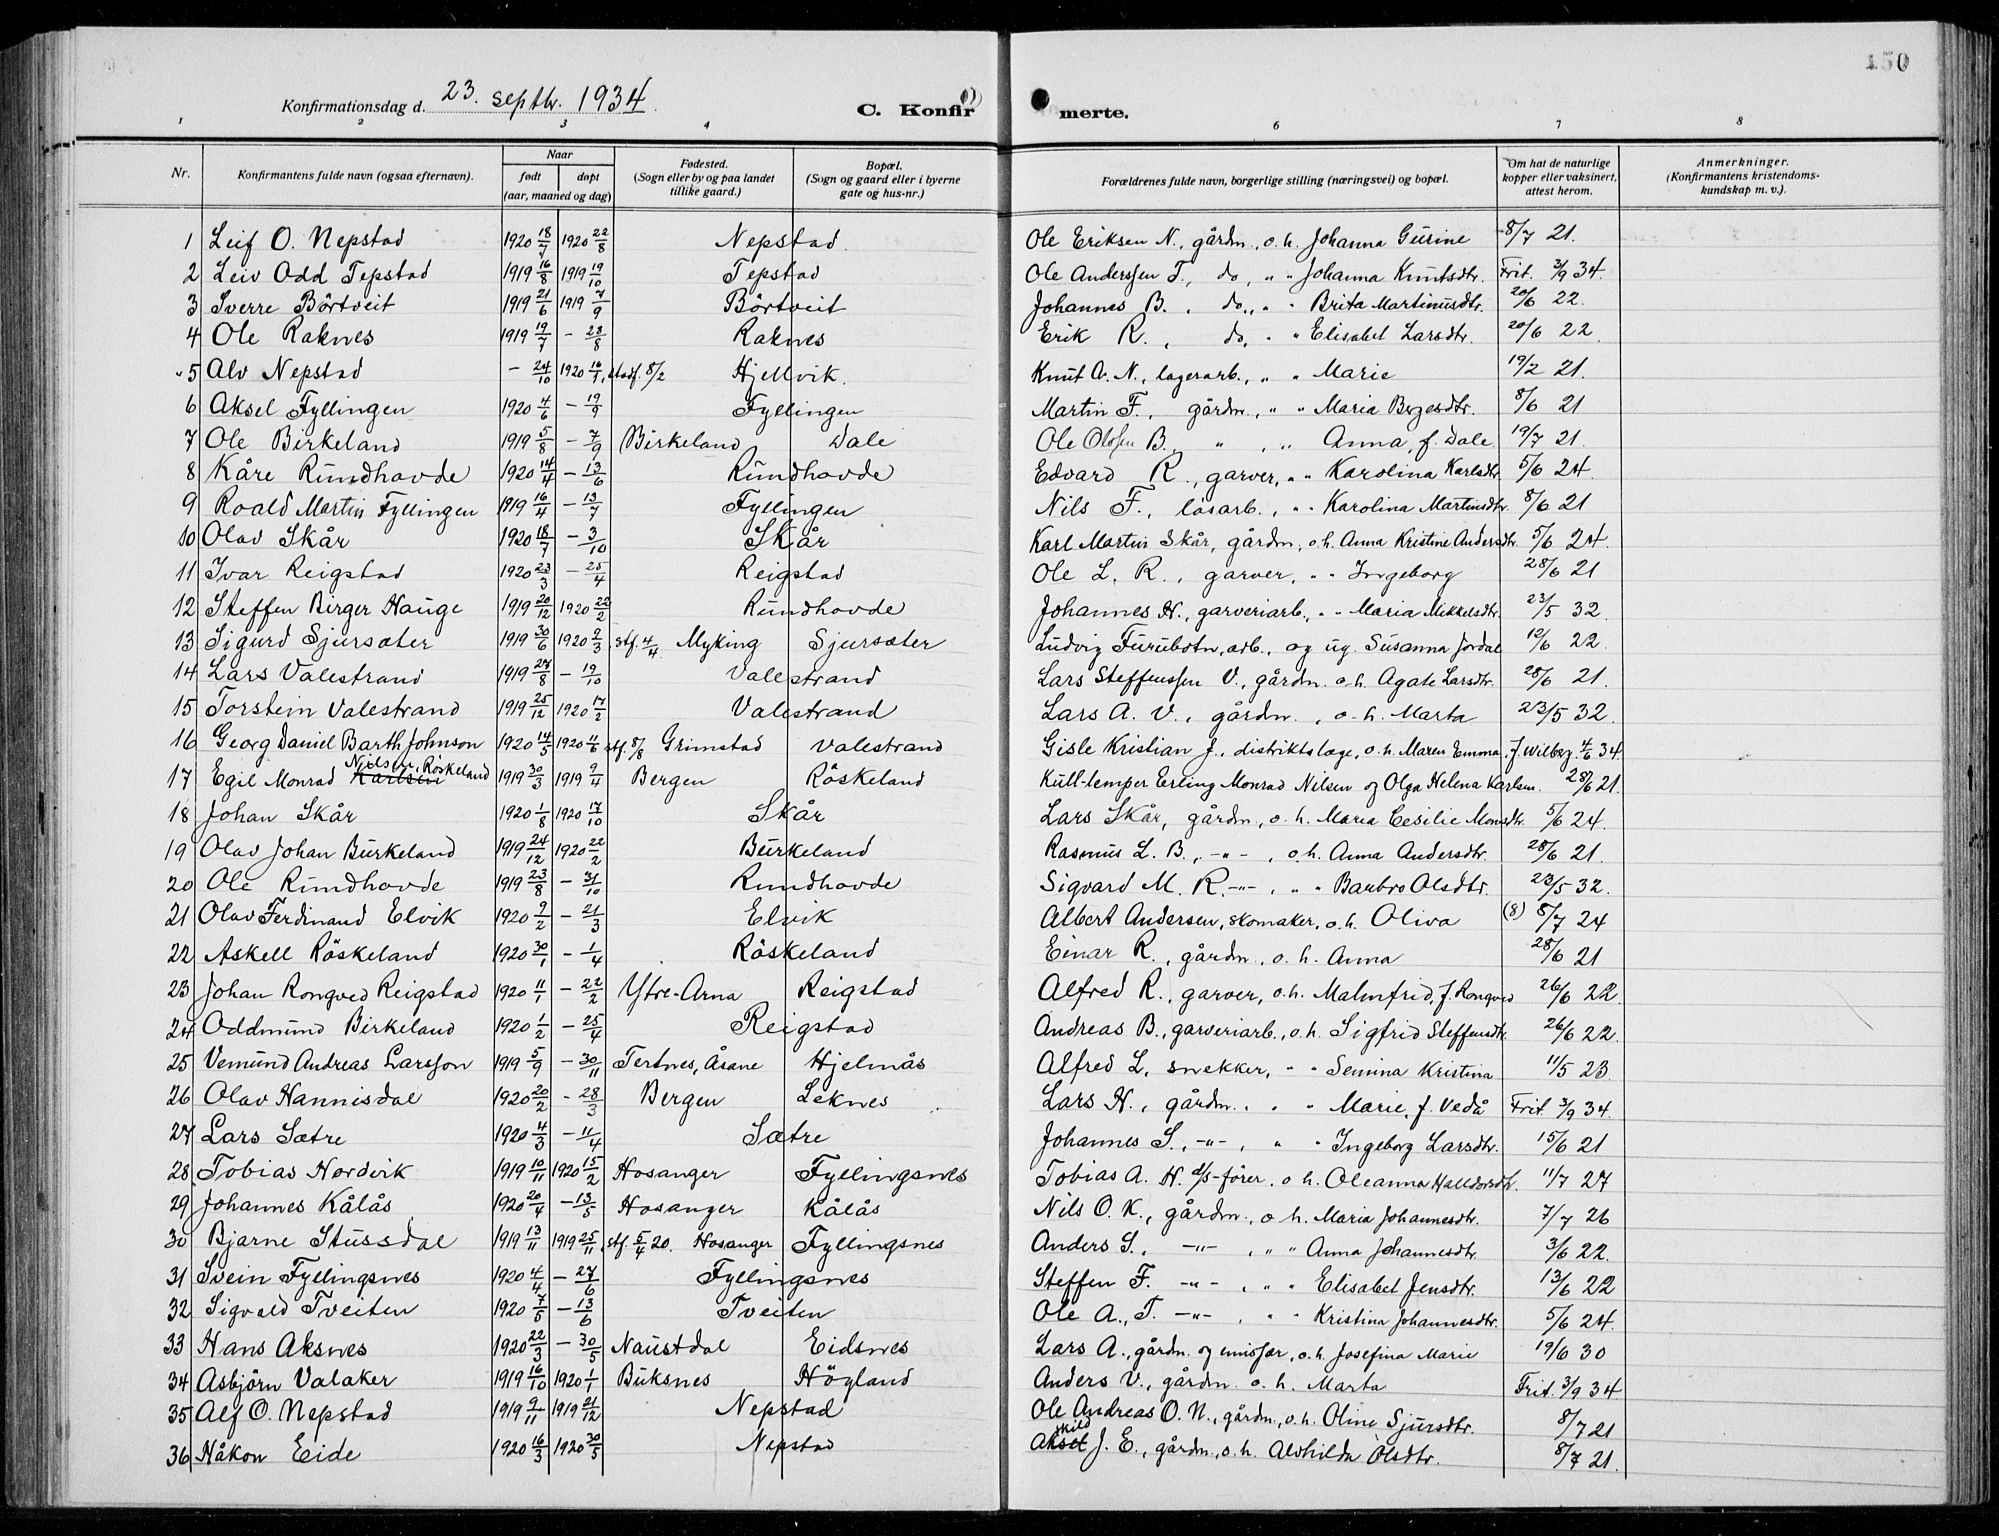 150
Konfirmationsdag d. 23. septbr. 1934.
C. Konfirmerte.
1 2 3 4 6 7 8
Nr. Konfirmantens fulde navn (ogsaa efternavn). Naar født døpt (aar, maaned og dag) Fødested. (Sogn eller by og paa landet tillike gaard.) Bopæl. (Sogn og gaard eller i byerne gate og hus-nr.) Forældrenes fulde navn, borgerlige stilling (næringsvei) og bopæl. Om hat de naturlige kopper eller vaksinert, attest herom. Anmerkninger. (Konfirmantens kristendomskundskap m. v.).
1 Leif O. Nepstad 1920 18/7 1920 22/8 Nepstad. Ole Eriksen N., gårdm., o. h. Johanna Gurine 8/7 21.
2 Leiv Odd Tepstad 1919 16/8 1919 19/10 Tepstad Ole Anderssen T., do, " " Johanna Knutsdtr. Frit. 3/9 34.
3 Sverre Börtveit 1919 21/6 1919 7/9 Börtveit Johannes B., do., " " Brita Martinusdtr. 20/6 22.
4 Ole Raknes 1919 19/7 – 28/8 Raknes Erik R., do, " " Elisabet Larsdtr. 20/6 22.
5 Alv Nepstad – 24/10 1920 16/1, stadf. 8/2 Hjellvik. Knut A. N., lagerarb., " " Marie 19/2 21.
6 Aksel Fyllingen 1920 4/6 – 19/9 Fyllingen Martin F., gårdm., " " Maria Bergesdtr. 8/6 21
7 Ole Birkeland 1919 5/8 – 7/9 Birkeland Dale Ole Olsen B., " , " Anna, f. Dale. 19/7 21.
8 Kåre Rundhovde 1920 14/4 – 13/6 Rundhovde Edvard R., garver, " " Karolina Karlsdtr. 5/6 24.
9 Roald Martin Fyllingen 1919 16/4 – 13/7 Fyllingen Nils F., løsarb., " " Karolina Martinsdtr. 8/6 21
10 Olav Skår 1920 18/7 – 3/10 Skår Karl Martin Skår, gårdm., o. h. Anna Kristine Andersdtr. 5/6 24.
11 Ivar Reigstad 1920 23/3 – 25/4 Reigstad Ole L. R., garver, " " Ingeborg 28/6 21
12 Steffen Birger Hauge 1919 20/12 1920 22/2 Rundhovde Johannes H., garveriarb., " " Maria Mikkelsdtr. 23/5 32.
13 Sigurd Sjursæter 1919 30/6 1920 9/3, stf. 4/4 Myking Sjursæter Ludvig Furubotn, arb., og ug. Susanna Jordal 12/6 22.
14 Lars Valestrand 1919 27/8 – 19/10 Valestrand Lars Steffenssen V., gårdm. o. h. Agate Larsdtr. 28/6 21.
15 Torstein Valestrand 1919 25/12 1920 17/2 Valestrand Lars A. V., gårdm., o. h. Marta 23/5 32.
16 Georg Daniel Barth Johnson 1920 14/5 1920 11/6 stf. 8/8 Grimstad Valestrand Gisle Kristian J., distriktslæge, o. h. Maren Emma, f. Wilberg. 4/6 34.
17 Egil Monrad Karlsen Nilsen, Röskeland 1919 30/3 1919 9/4 Bergen Röskeland Kull-lemper Erling Monrad Nilsen og Olga Helena Karlsen. 28/6 21.
18 Johan Skår 1920 1/8 1920 17/10 Skår Lars Skår, gårdm., o. h. Maria Cesilie Monsdtr. 5/6 24.
19 Olav Johan Burkeland 1919 24/12 1920 22/2 Burkeland Rasmus L. B., –"– , o. h. Anna Andersdtr. 28/6 21.
20 Ole Rundhovde 1919 23/8 – 31/10 Rundhovde Sigvard M. R. –"– , " " Barbro Olsdtr. 23/5 32.
21 Olav Ferdinand Elvik 1920 9/2 – 21/3 Elvik Albert Andersen, skomaker, o. h. Oliva (8) 8/7 24
22 Askell Röskeland 1920 30/1 – 1/4 Röskeland Einar R., gårdm., o. h. Anna 28/6 21
23 Johan Rongved Reigstad 1920 11/1 – 22/2 Ytre-Arna Reigstad Alfred R., garver, o. h. Malmfrid, f. Rongved 26/6 22.
24 Oddmund Birkeland 1920 1/2 – 25/4 Reigstad Andreas B., garveriarb., o. h. Sigfrid Steffensdtr. 26/6 22.
25 Vemund Andreas Larsson 1919 5/9 – 30/11 Tertnes, Åsane Hjelmås Alfred L. snekker, " " Semina Kristina 11/5 23.
26 Olav Hannisdal 1920 20/2 – 28/3 Bergen Leknes Lars H., gårdm. " " Marie, f. Vedå Frit. 3/9 34.
27 Lars Sætre 1920 4/3 – 11/4 Sætre Johannes S., –"– , " " Ingeborg Larsdtr. 15/6 21
28 Tobias Nordvik 1919 10/11 1920 15/2 Hosanger Fyllingsnes Tobias A. N. d/s-förer, o. h. Oleanna Halldorsdtr. 11/7 27
29 Johannes Kålås 1920 20/4 – 13/5 Hosanger Kålås Nils O. K., gårdm., o. h. Maria Johannesdtr. 7/7 26
30 Bjarne Stussdal 1919 13/11 1919 25/11, stf. 5/4 20. Hosanger Fyllingsnes Anders S., –"– , " " Anna Johannesdtr. 3/6 22.
31 Svein Fyllingsnes 1920 4/4 – 27/6 Fyllingsnes Steffen F. –"– , " " Elisabet Jensdtr. 13/6 22
32 Sigvald Tveiten 1920 7/5 – 13/6 Tveiten Ole A., T. –"– , " " Kristina Johannesdtr. 5/6 24.
33 Hans Aksnes 1920 22/3 – 30/5 Naustdal Eidsnes Lars A., gårdm. og emissær, o. h. Josefina Marie 19/6 30
34 Asbjörn Valaker 1919 16/10 1920 1/1 Buksnes Högland Anders V., gårdm. o. h. Marta Frit. 3/9 34
35 Alf O. Nepstad 1919 9/11 1919 21/12 Nepstad Ole Andreas O. N., gårdm., o. h. Oline Sjursdtr. 8/7 21
36 Håkon Eide 1920 16/3 1920 30/5 Nepstad Aksel skild J. E., gårdm., o. h. Alvhilda Olsdtr. 8/7 21.